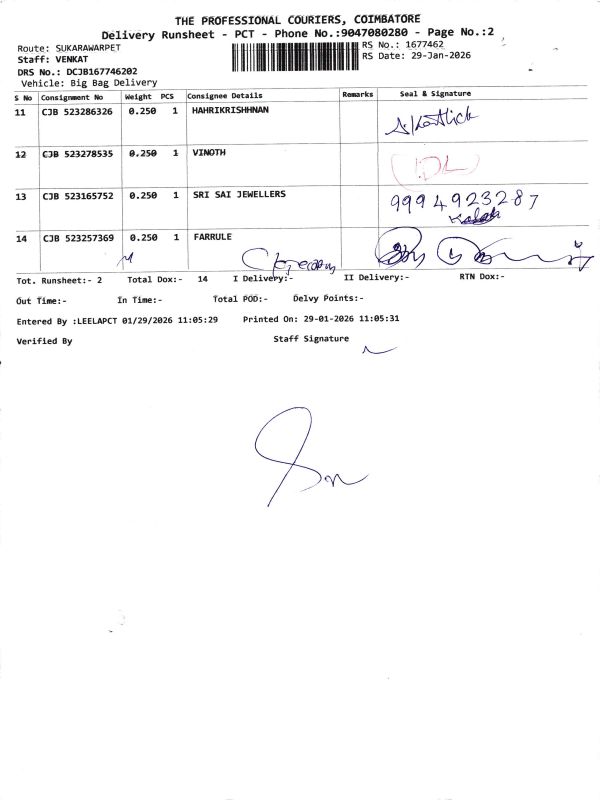 THE PROFESSIONAL COURIERS, COIMBATORE
Delivery Runsheet - PCT - Phone No.:9047080280 - Page No.:2
Route: SUKARAWARPET
RS No.: 1677462
Staff: VENKAT
RS Date: 29-Jan-2026
DRS No.: DCJB167746202
Vehicle: Big Bag Delivery
S No Consignment No Weight PCS Consignee Details Remarks Seal & Signature
11 CJB 523286326 0.250 1 HAHRIKRISHHNAN
12 CJB 523278535 0.250 1 VINOTH
13 CJB 523165752 0.250 1 SRI SAI JEWELLERS 9994923287
14 CJB 523257369 0.250 1 FARRULE
Tot. Runsheet:- 2 Total Dox:- 14 I Delivery:- II Delivery:- RTN Dox:-
Out Time:- In Time:- Total POD:- Delvy Points:-
Entered By :LEELAPCT 01/29/2026 11:05:29 Printed On: 29-01-2026 11:05:31
Verified By Staff Signature